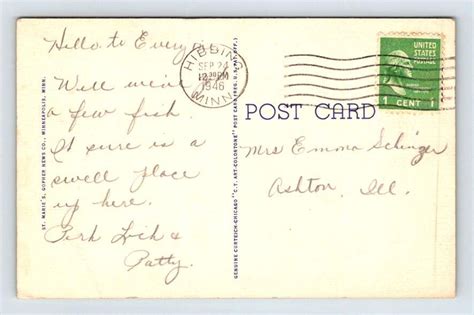 Hello to Every
HIBBING
SEP 24
12 30 PM
1946
MINN.
UNITED STATES
POSTAGE
1 CENT 1
POST CARD
Well we're
a few fish.
It sure is a
swell place
up here.
&
Patty.
Mrs Emma
Ashton, Ill.
ST. MARIE'S GOPHER NEWS CO., MINNEAPOLIS, MINN.
GENUINE CURTEICH-CHICAGO "C. T. ART-COLORTONE" POST CARD (REG. U. S. PAT. OFF.)